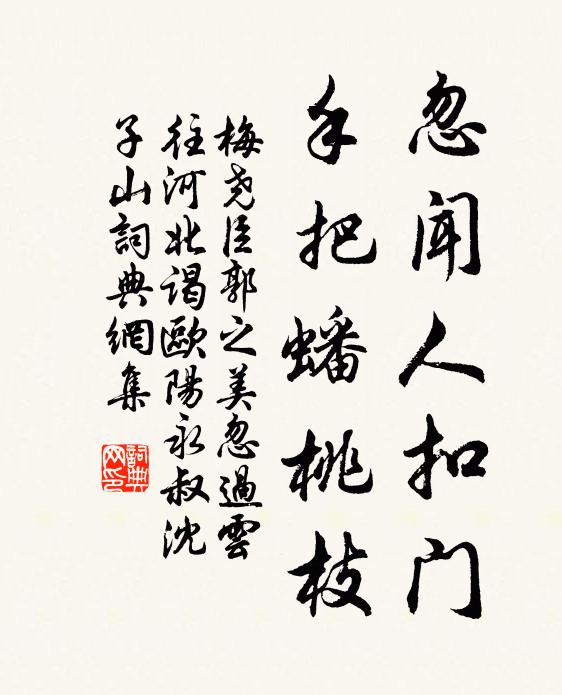 忽闻人扣门
手把蟠桃枝
梅尧臣郭之美忽過雲
往河北谒歐陽永叔沈
子山詞典網集
詞典网印